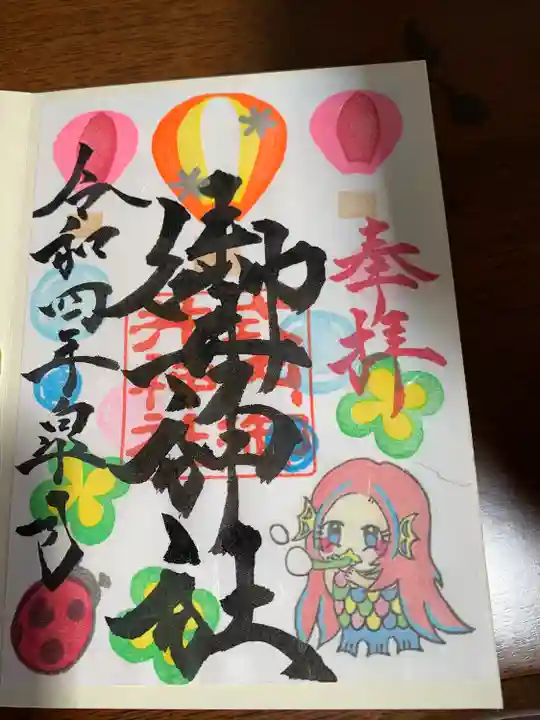 奉拝
御井神社
令和四年皐月